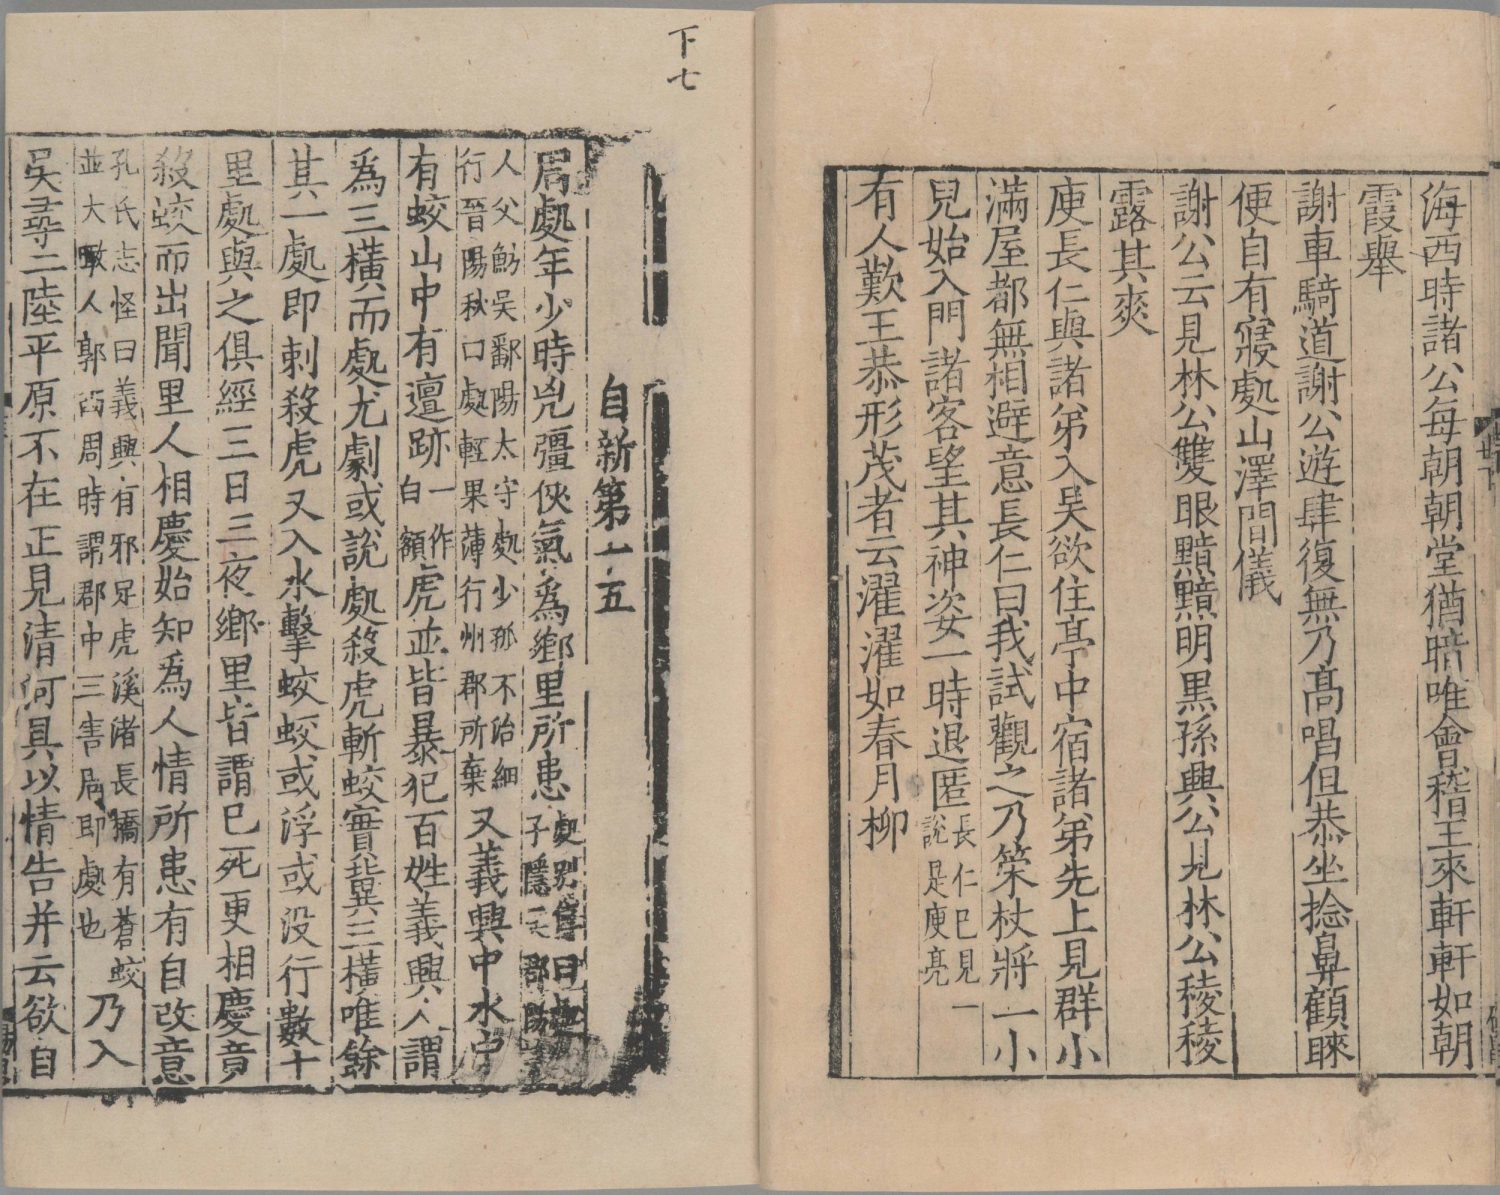 海西時諸公每朝朝堂猶暗唯會稽王來軒軒如朝
霞舉
謝車騎道謝公遊肆復無乃高唱但恭坐捻鼻顧睞
便自有寢處山澤間儀
謝公云見林公雙眼黯黯明黑孫興公見林公稜稜
露其爽
庾長仁與諸弟入吳欲住亭中宿諸弟先上見群小
滿屋都無相避意長仁曰我試觀之乃策杖將一小
兒始入門諸客望其神姿一時退匿長仁已見一
說是庾亮
有人歎王恭形茂者云濯濯如春月柳
下七
自新第十五
周處年少時兇彊俠氣為鄉里所患處別傳曰處
子隱吳郡陽
人父魴吳鄱陽太守處少孤不治細
行晉陽秋口處輕果薄行州郡所棄
又義興中水中
有蛟山中有邅跡一作
白額
虎並皆暴犯百姓義興人謂
為三橫而處尤劇或說處殺虎斬蛟實冀三橫唯餘
其一處即刺殺虎又入水擊蛟蛟或浮或没行數十
里處與之俱經三日三夜鄉里皆謂已死更相慶竟
殺蛟而出聞里人相慶始知為人情所患有自改意
孔氏志怪曰義興有邪足虎溪渚長橋有蒼蛟
並大噉人郭西周時謂郡中三害周即處也
乃入
吳尋二陸平原不在正見清河具以情告并云欲自